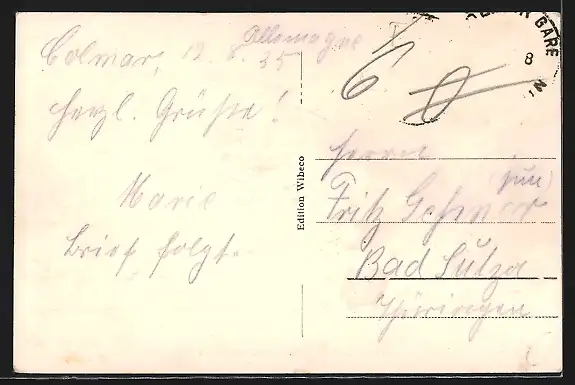 Colmar, 12. 8. 35
Allemagne
herzl. Grüße!
Marie
Brief folgt.
Edition Wibeco
GARE
8
60
Herrn
Fritz (jun)
Bad Sulza
Thüringen